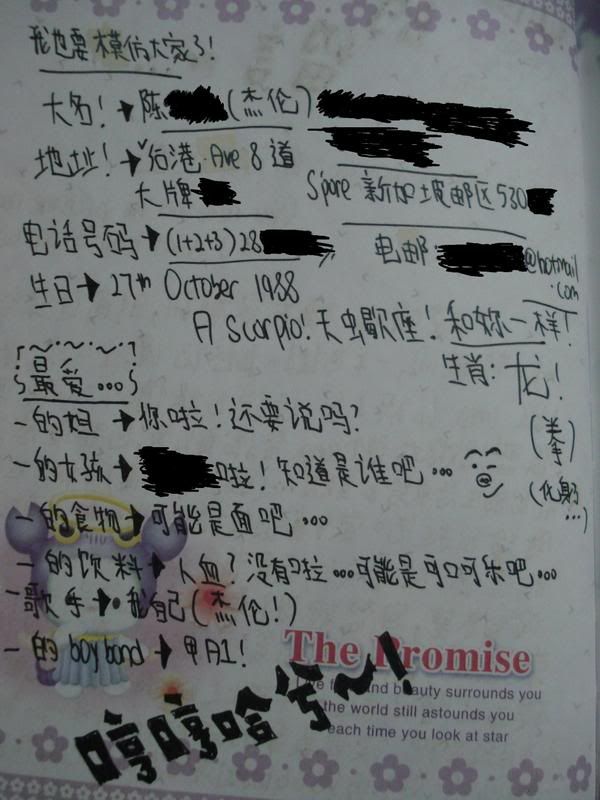 我也要模仿大家了!
大名! → 陈 (杰伦)
地址! → 后港 Ave 8 道
大牌
S'pore 新加坡邮区 530
电话号码 → (1+2+3) 28
电邮 @hotmail
.com
生日 → 27th October 1988
A Scorpio! 天虫歇座! 和妳一样!
最爱...
生肖: 龙!
-的妞 → 你啦! 还要说吗?
(拳)
-的女孩 → 啦! 知道是谁吧...
(化身
...)
-的食物 → 可能是面吧...
-的饮料 → 人血? 没有啦...可能是可口可乐吧...
-歌手 → 我自己 (杰伦!)
-的 boyband → 甲月1!
The Promise
Love and beauty surrounds you
the world still astounds you
each time you look at star
哼哼哈兮~!